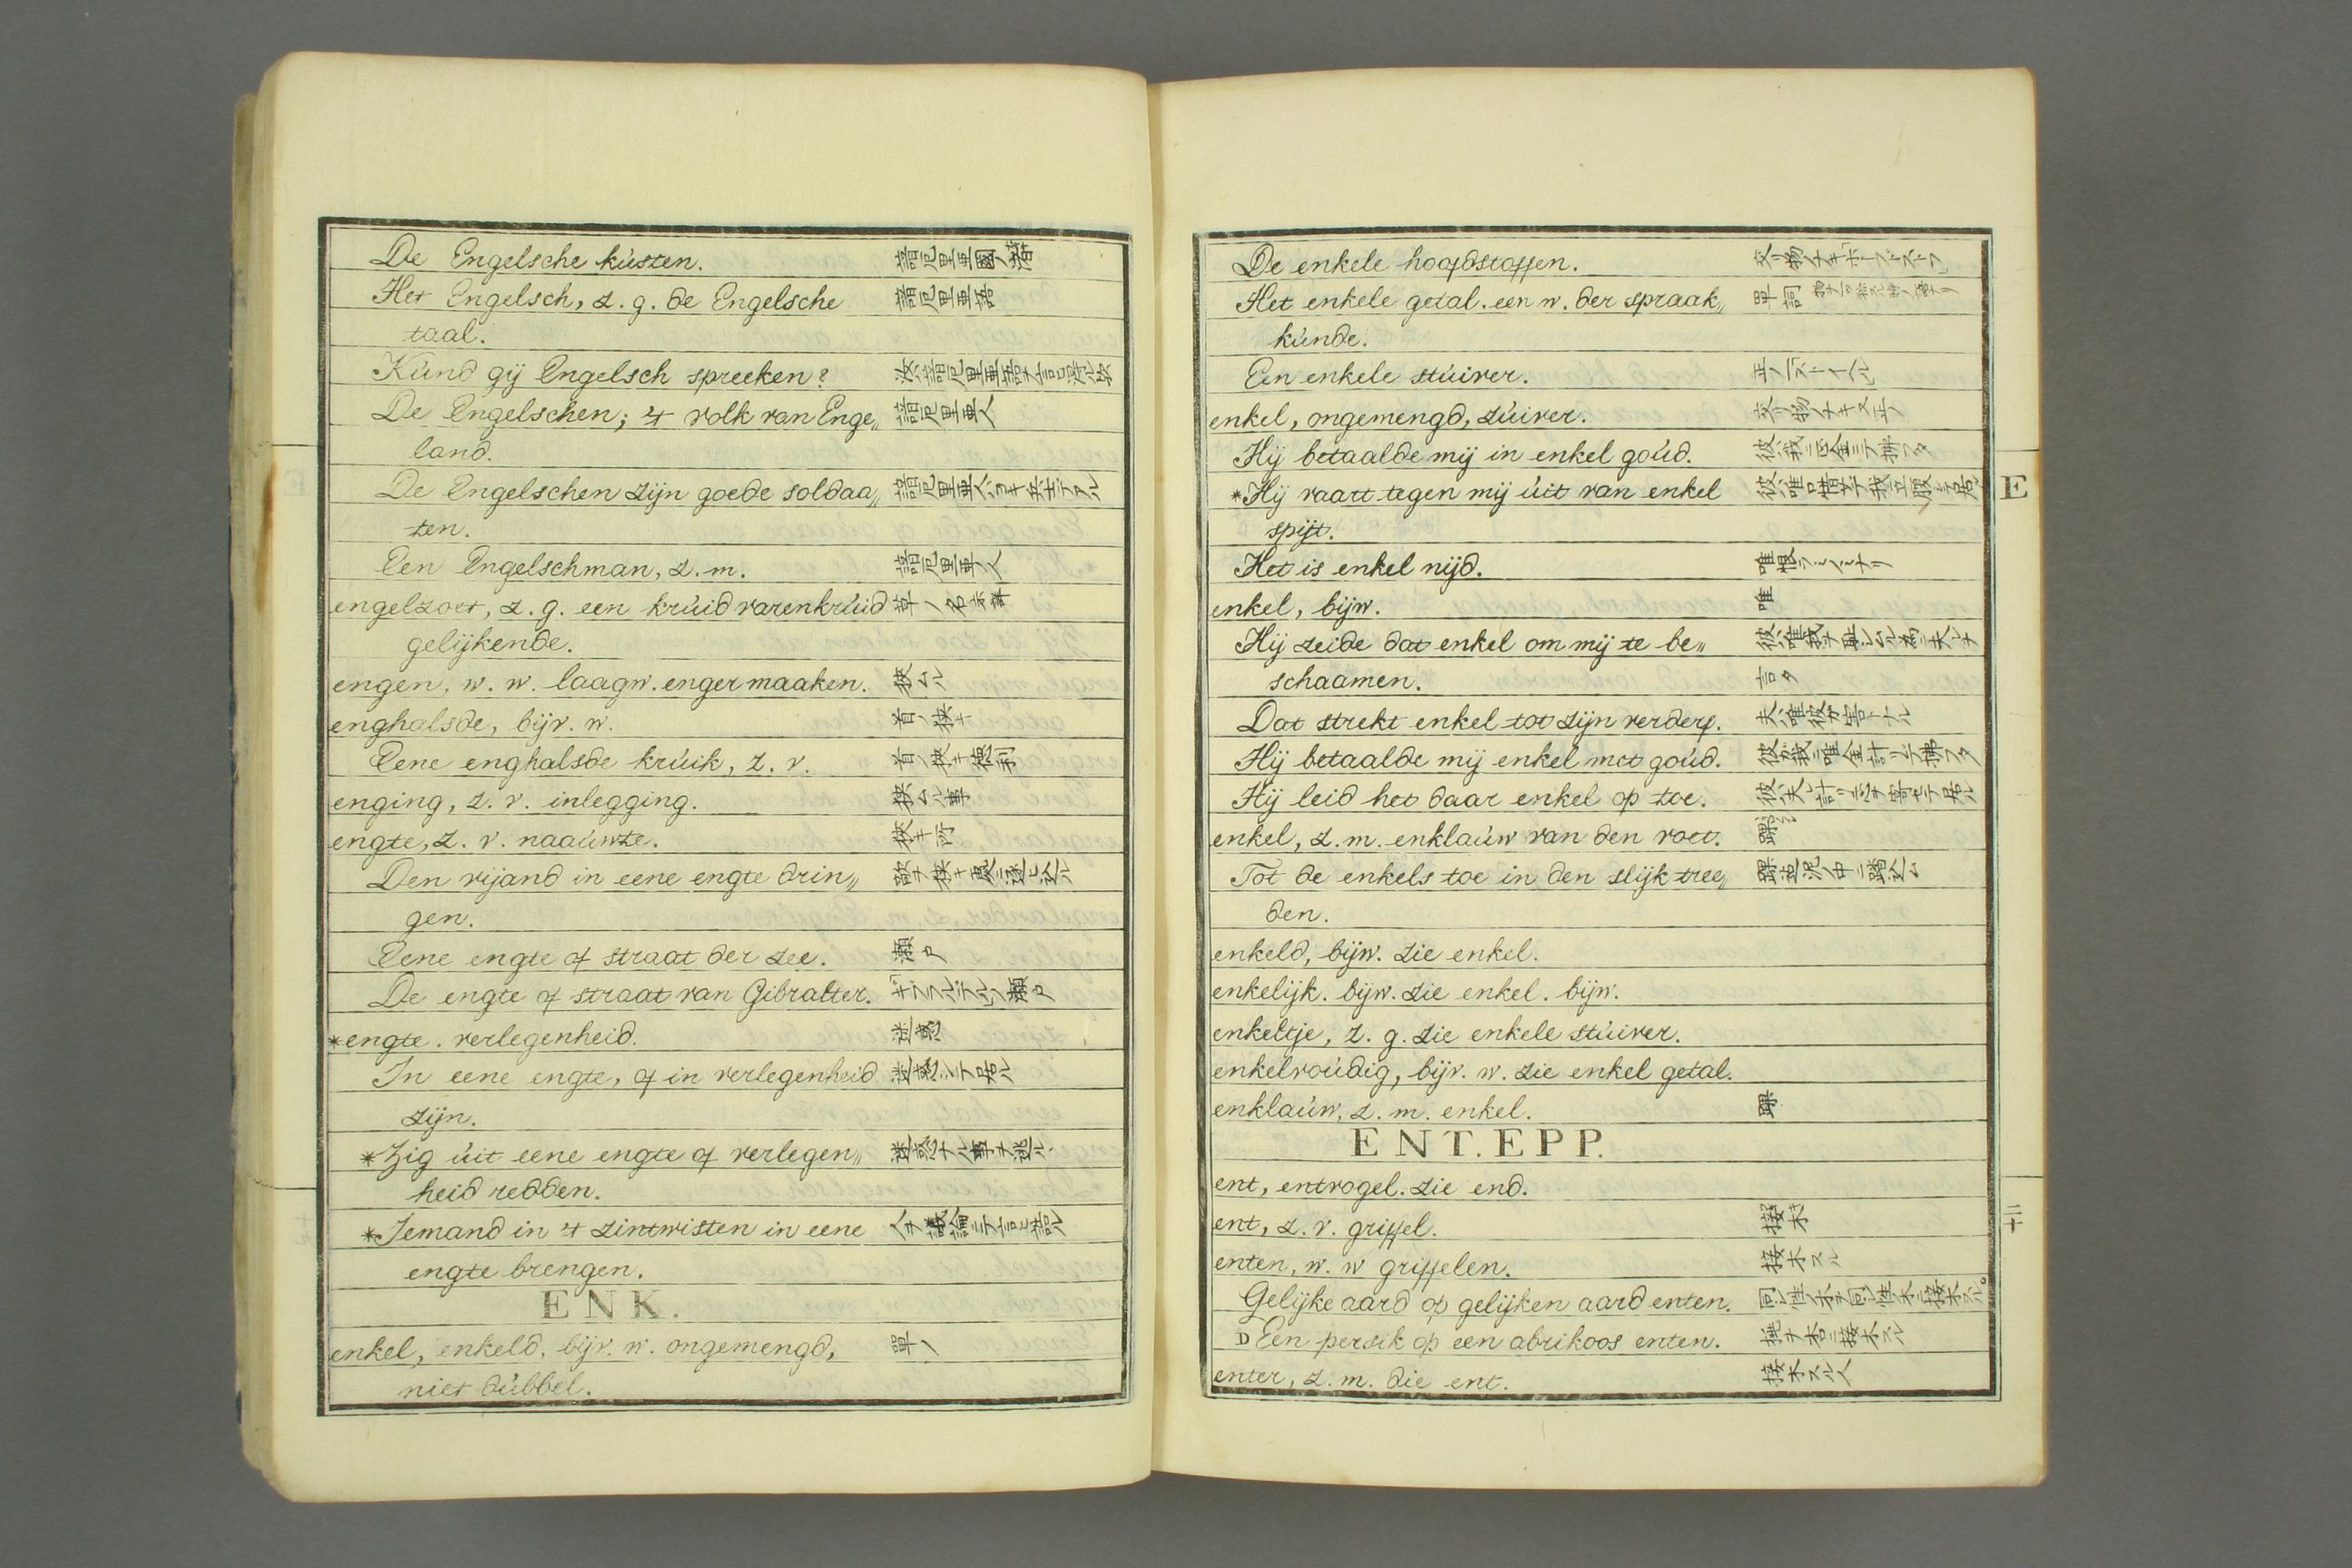 De Engelsche kústen. 諳厄里亜國ノ
Het Engelsch, z. g. de Engelsche 諳厄里亜語
taal.
Kúnd gij Engelsch spreeken? 汝諳厄里亜語ヲ言得ル歟
De Engelschen; 't volk van Enge„ 諳厄里亜人
land.
De Engelschen zijn goede soldaa„ 諳厄里亜人ハヨキ兵士デアル
ten.
Een Engelschman, z. m. 諳厄里亜ノ人
engelzoet, z. g. een krúid varenkrúid 草ノ名
gelijkende.
engen, w. w. laagw. enger maaken. 狭ムル
enghalsde, bijv. w. 首ノ狭キ
Eene enghalsde krúik, z. v. 首ノ狭キ徳利
enging, z. v. inlegging. 狭ムル事
engte, z. v. naaúwte. 狭キ所
Den vijand in eene engte drin„ 敵ヲ狭キ處ニ追ヒ込ル
gen.
Eene engte of straat der zee. 瀬戸
De engte of straat van Gibralter. ギブラルテルノ瀬戸
*engte. verlegenheid. 迷惑
In eene engte, of in verlegenheid 迷惑シテ居ル
zijn.
*Zig úit eene engte of verlegen„ 迷惑ナル事ヲ逃ル
heid redden.
*Iemand in 't zintwisten in eene 人ヲ議論シテ言ヒ詰ル
engte brengen.
ENK.
enkel, enkeld, bijv. w. ongemengd, 單ノ
niet dúbbel.
De enkele hoofdstoffen. 交リ物ナキホーフドストフ
Het enkele getal. een w. der spraak„ 単詞
kúnde.
Een enkele stúiver. 正ノストイフル
enkel, ongemengd, zúiver. 交リ物ナキ又正ノ
Hij betaalde mij in enkel goúd. 彼ハ我ニ正金ニテ拂フタ
*Hij vaart tegen mij úit van enkel 彼ハ唯口惜サデ我ニ立腹シテ居ル
spijt.
Het is enkel nijd. 唯恨
enkel, bijw. 唯
Hij zeide dat enkel om mij te be„ 彼ハ唯我ヲ耻シムル為ニ夫レヲ
schaamen. 言タ
Dat strekt enkel tot zijn verderf. 夫ハ唯彼ガ害トナル
Hij betaalde mij enkel met goúd. 彼ガ我ニ唯金計リデ拂フタ
Hij leid het daar enkel op toe. 彼ハ夫レ計リニ心ヲ寄セテ居ル
enkel, z. m. enklaúw van den voet. 踝
Tot de enkels toe in den slijk tree„ 踝迄泥ノ中ニ踏込ム
den.
enkeld, bijw. zie enkel.
enkelijk. bijw. zie enkel. bijw.
enkeltje, z. g. zie enkele stúiver.
enkelvoúdig, bijv. w. zie enkel getal.
enklaúw, z. m. enkel. 踝
E
ENT. EPP.
ent, entvogel. zie end.
ent, z. v. griffel. 接木
enten, w. w griffelen. 接木スル
Gelijke aard op gelijken aard enten. 同シ性ノ木ヲ同シ性ノ木ニ接木スル。
D Een persik op een abrikoos enten. 桃ヲ杏ニ接木スル
enter, z. m. die ent. 接木スル人
二十